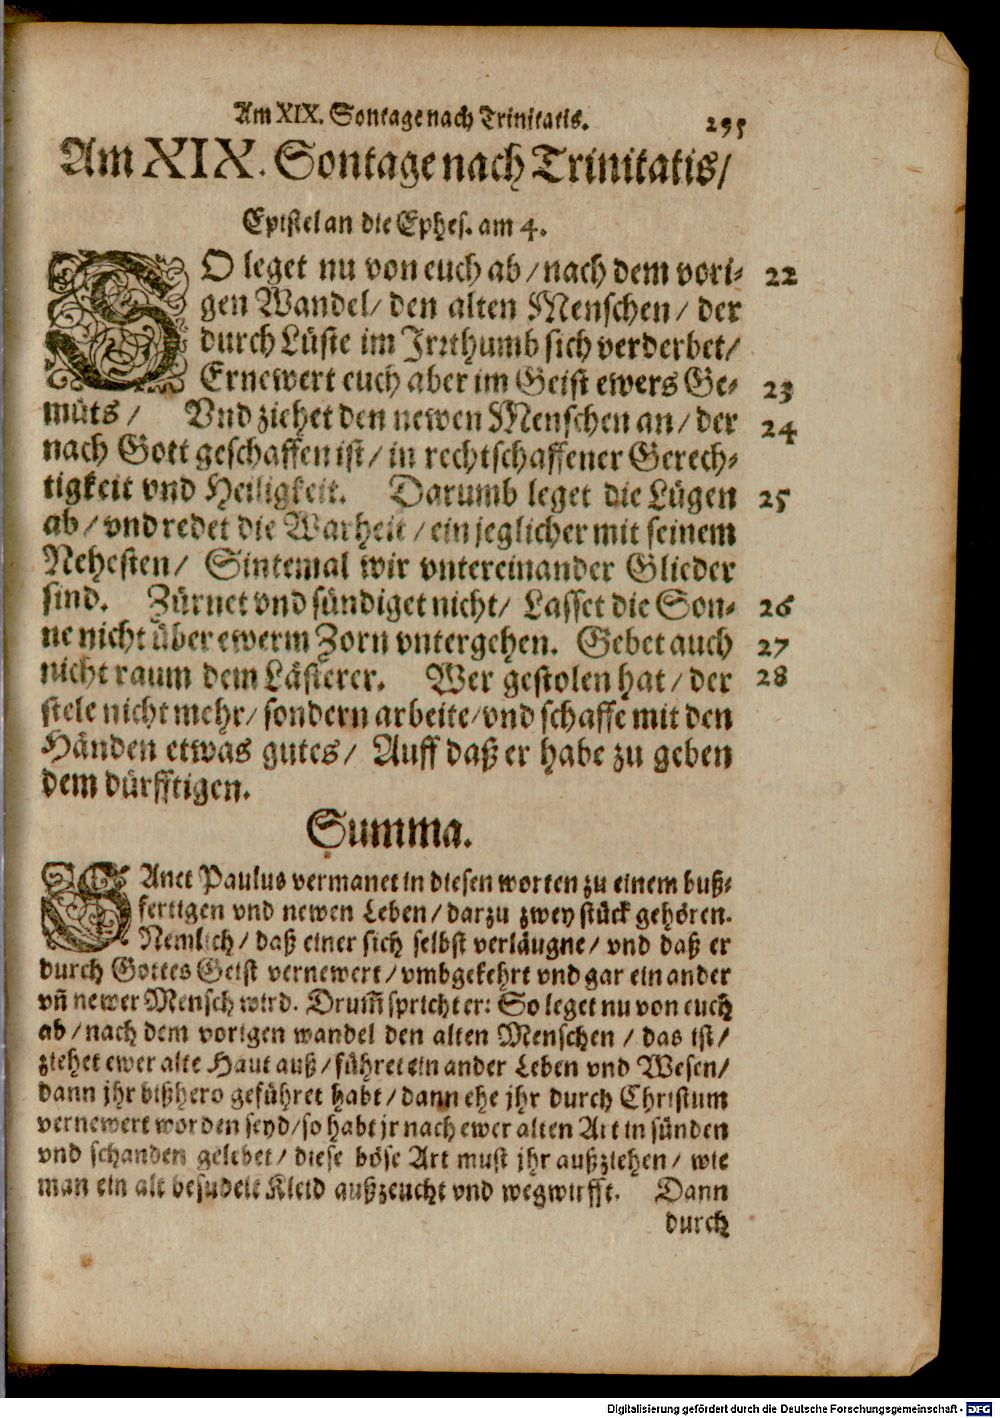 Am XIX. Sontage nach Trinitatis. 295
Am XIX. Sontage nach Trinitatis/
Epistel an die Ephes. am 4.
SO leget nu von euch ab/nach dem vori- 22
gen Wandel/ den alten Menschen/ der
durch Lüste im Irrthumb sich verderbet/
Ernewert euch aber im Geist ewers Ge- 23
müts/ Vnd ziehet den newen Menschen an/ der 24
nach Gott geschaffen ist/ in rechtschaffener Gerech-
tigkeit vnd Heiligkeit. Darumb leget die Lügen 25
ab/ vnd redet die Warheit/ ein jeglicher mit seinem
Nehesten/ Sintemal wir vntereinander Glieder
sind. Zürnet vnd sündiget nicht/ Lasset die Son- 26
ne nicht über ewerm Zorn vntergehen. Gebet auch 27
nicht raum dem Lästerer. Wer gestolen hat/ der 28
stele nicht mehr/ sondern arbeite/vnd schaffe mit den
Händen etwas gutes/ Auff daß er habe zu geben
dem dürfftigen.
Summa.
SAnct Paulus vermanet in diesen worten zu einem buß-
fertigen vnd newen Leben/ darzu zwey stück gehören.
Nemlich/ daß einer sich selbst verläugne/ vnd daß er
durch Gottes Geist vernewert/ vmbgekehrt vnd gar ein ander
vñ newer Mensch wird. Drum̃ spricht er: So leget nu von euch
ab/ nach dem vorigen wandel den alten Menschen/ das ist/
ziehet ewer alte Haut auß/ führet ein ander Leben vnd Wesen/
dann jhr bißhero geführet habt/ dann ehe jhr durch Christum
vernewert worden seyd/ so habt jr nach ewer alten Art in sünden
vnd schanden gelebet/ diese böse Art must jhr außziehen/ wie
man ein alt besudelt Kleid außzeucht vnd wegwirfft. Dann
durch
Digitalisierung gefördert durch die Deutsche Forschungsgemeinschaft - DFG